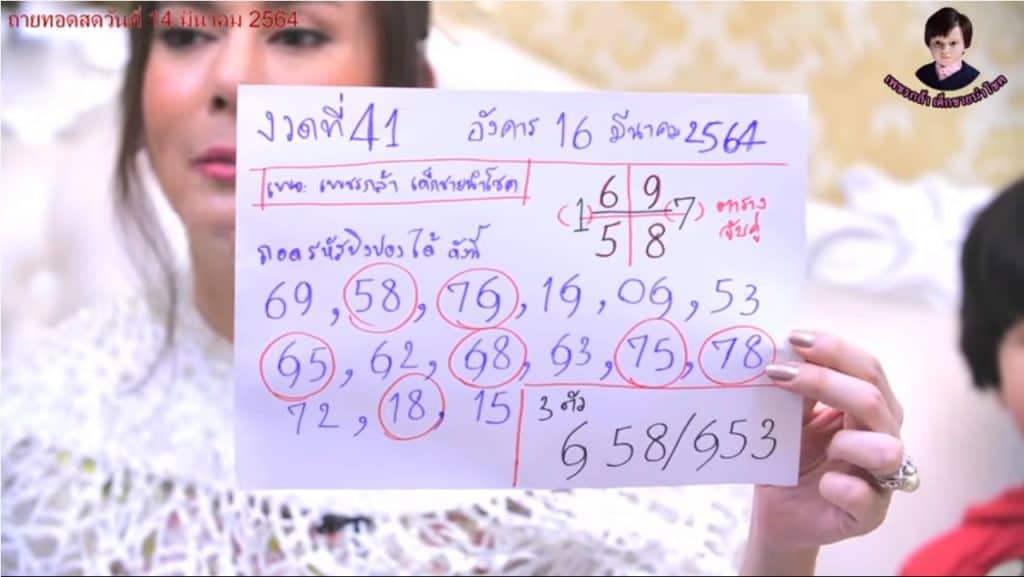 ถ่ายทอดสดวันที่ 14 มีนาคม 2564
เพชรกล้า เด็กชายนำโชค
งวดที่ 41 อังคาร 16 มีนาคม 2564
เพจ: เพชรกล้า เด็กชายนำโชค
6 9
(1) (7) ตาราง
5 8 จับคู่
ถอดรหัสปิงปองได้ ดังนี้
69, 58, 76, 16, 06, 53
65, 62, 68, 63, 75, 78
72, 18, 15
3 ตัว
658/653